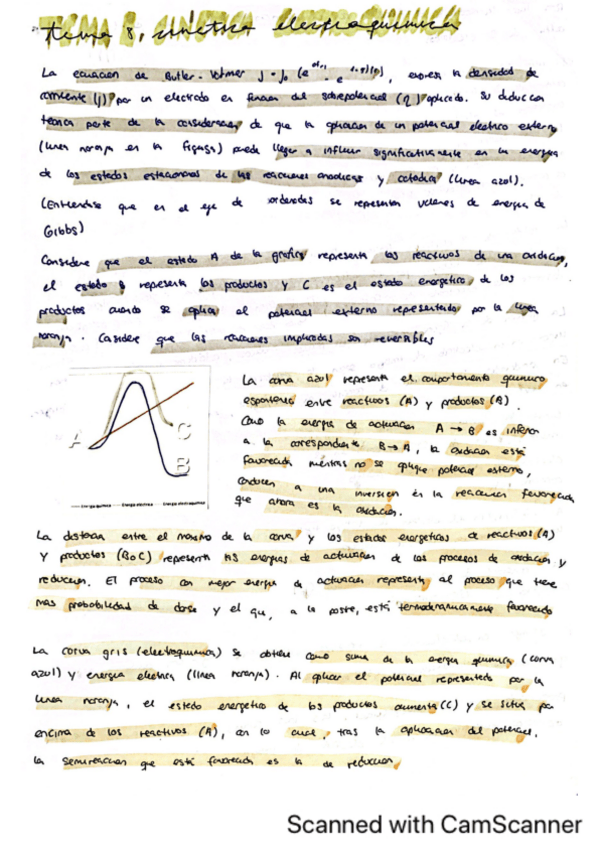 Tema 8, cinetica electroquimica
La ecuacion de Butler-Volmer j = j₀ (e - e), expresa la densidad de
corriente (j) por un electrodo en funcion del sobrepotencial (η) aplicado. Su deduccion
teorica parte de la consideracion de que la aplicacion de un potencial electrico externo
(linea naranja en la figura) puede llegar a influir significativamente en la energia
de los estados estacionarios de las reacciones anodicas y catodica (linea azul).
(Entiendase que en el eje de ordenadas se representan valores de energia de
Gibbs)
Considere que el estado A de la grafica representa los reactivos de una oxidacion,
el estado B representa los productos y C es el estado energetico de los
productos cuando se aplica el potencial externo representado por la linea
naranja. Considere que las reacciones implicadas son reversibles
A
C
B
Energia quimica Energia electrica Energia electroquimica
La curva azul representa el comportamiento quimico
espontaneo entre reactivos (A) y productos (B).
Como la energia de activacion A → B es inferior
a la correspondiente B → A, la oxidacion esta
favorecida mientras no se aplique potencial externo,
conducen a una inversion en la reaccion favorecida
que ahora es la oxidacion.
La distancia entre el maximo de la curva y los estados energeticos de reactivos (A)
y productos (B o C) representa las energias de activacion de los procesos de oxidacion y
reduccion. El proceso con mejor energia de activacion representa al proceso que tiene
mas probabilidad de darse y el que, a la postre, está termodinamicamente favorecido
La curva gris (electroquimica) se obtiene como suma de la energia quimica (curva
azul) y energia electrica (línea naranja). Al aplicar el potencial representado por la
linea naranja, el estado energetico de los productos aumenta (C) y se situa por
encima de los reactivos (A), con lo cual, tras la aplicacion del potencial,
la semireaccion que está favorecida es la de reduccion
Scanned with CamScanner